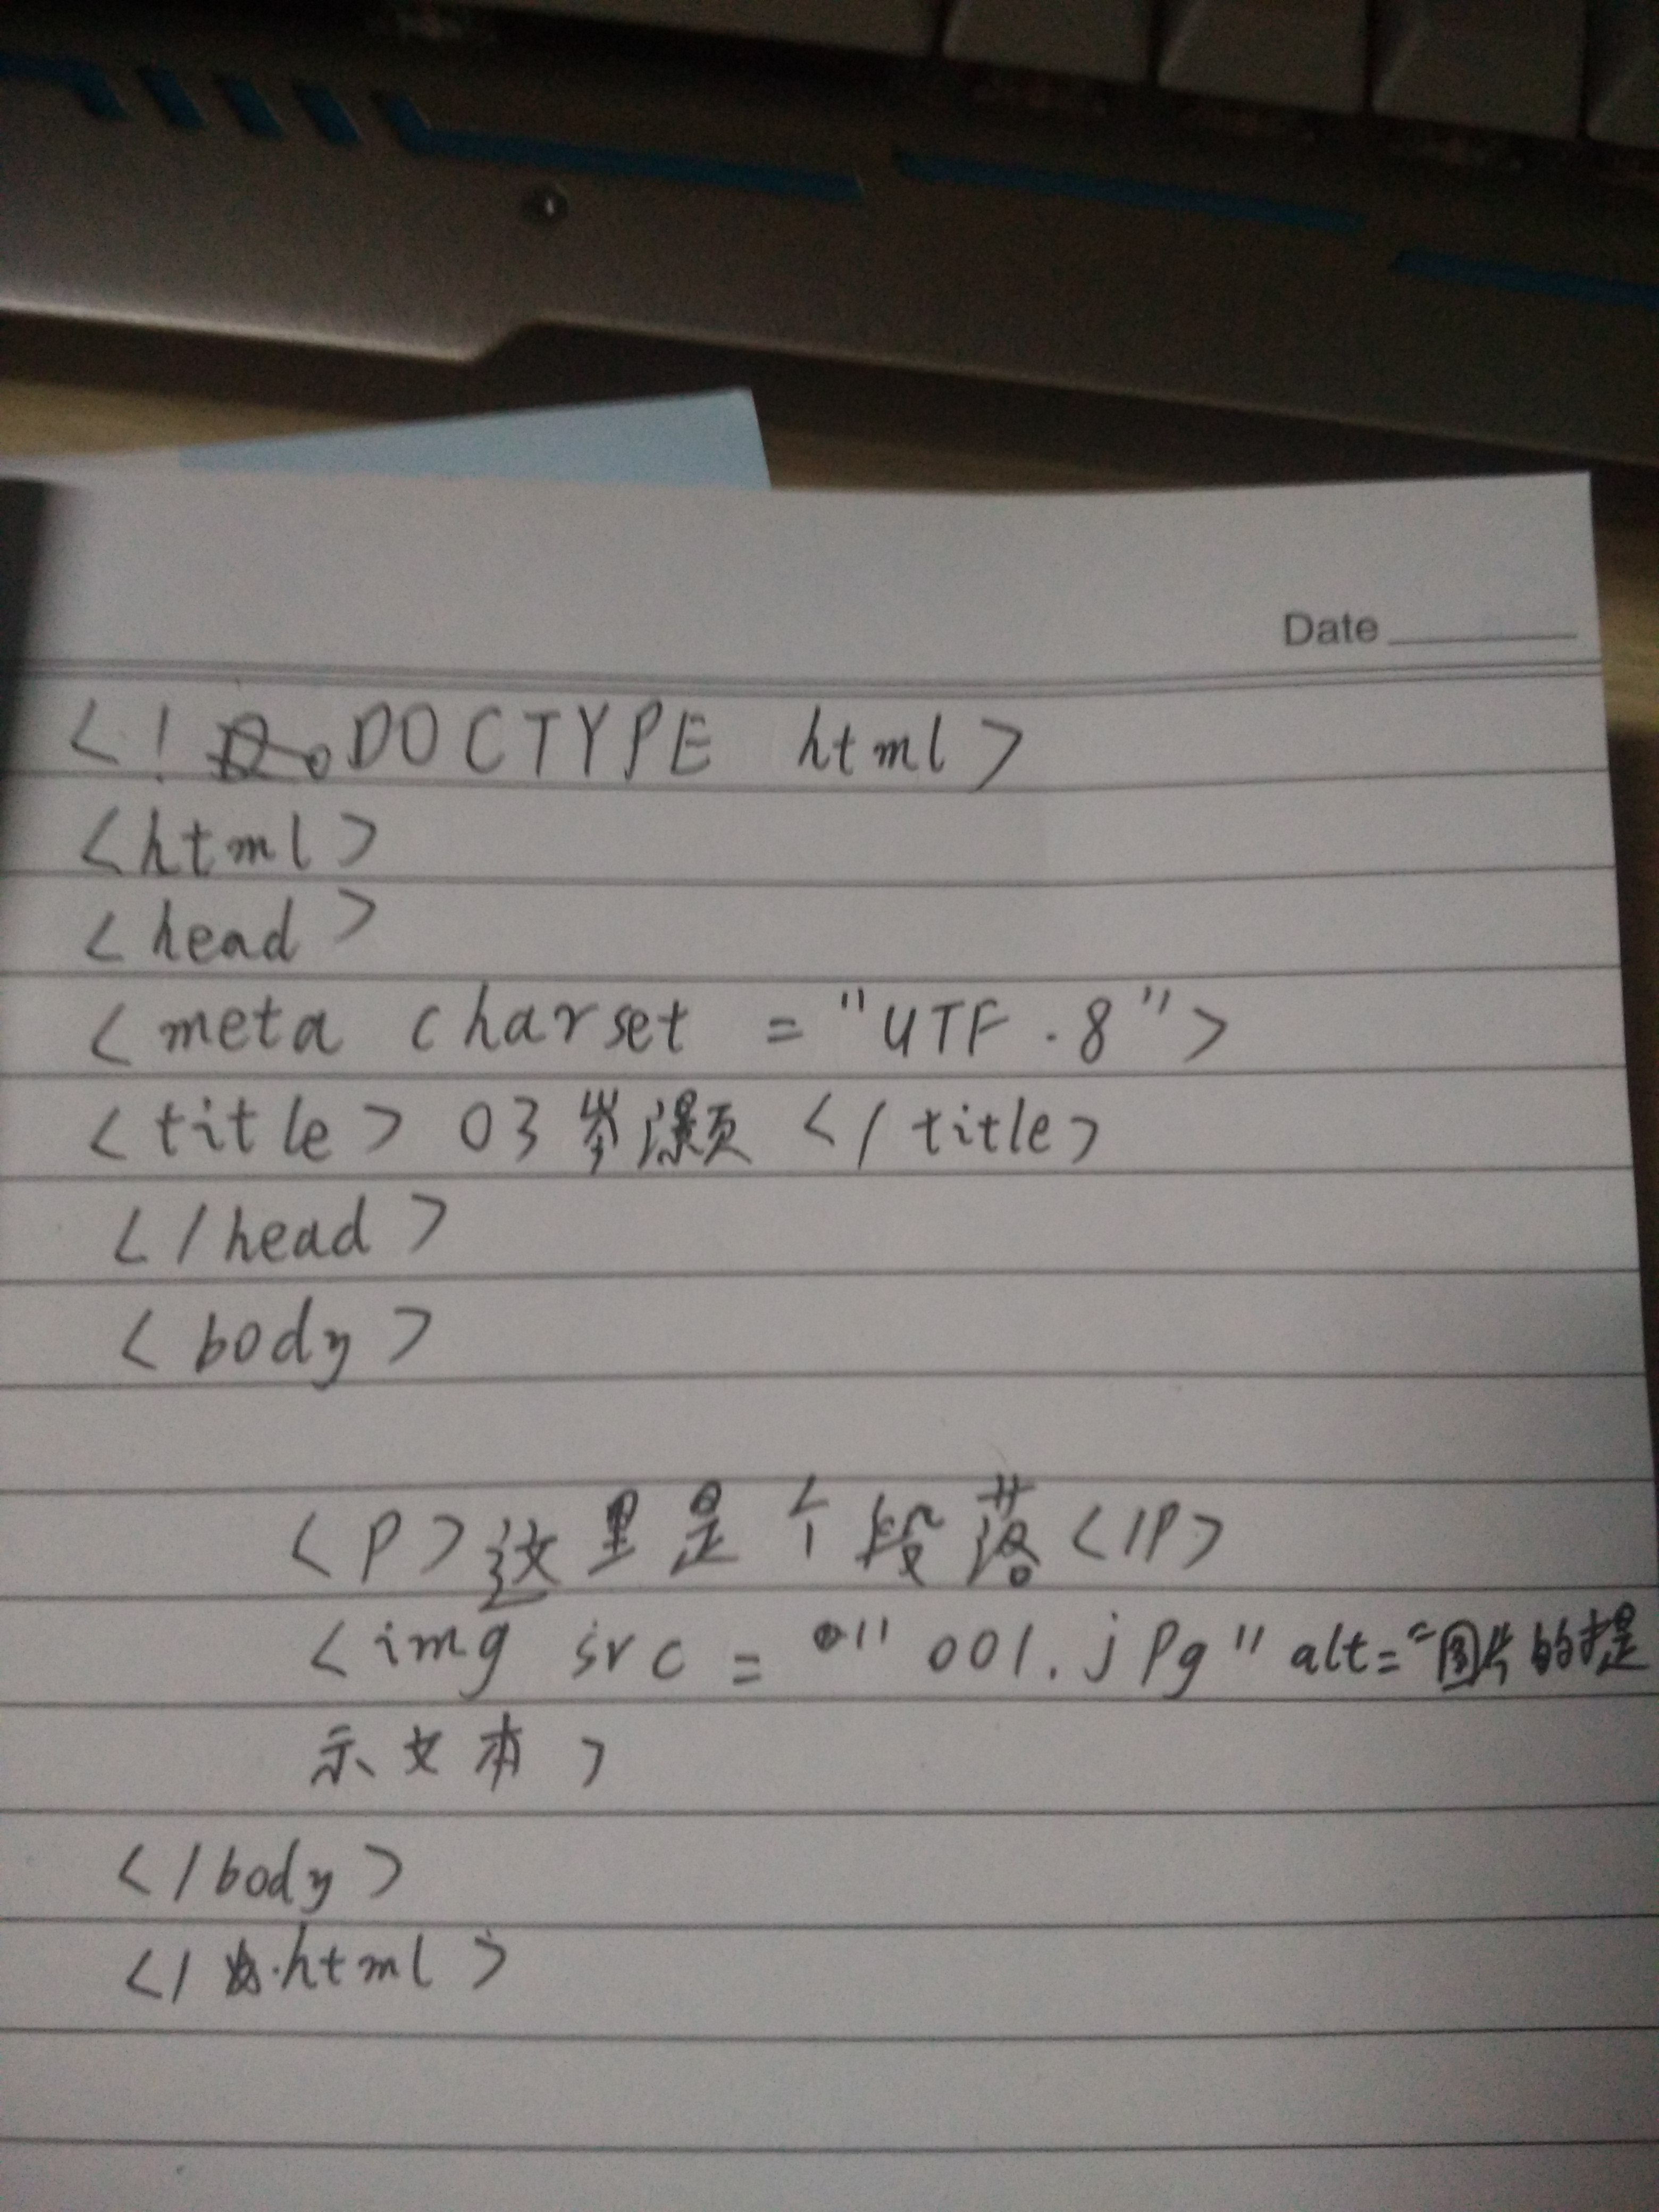 Date
<! DOCTYPE html>
<html>
<head>
<meta charset = "UTF-8">
<title> 03 岑灏颎 </title>
</head>
<body>
<p>这里是个段落</p>
<img src = "001.jpg" alt="图片的提
示文本>
</body>
</html>